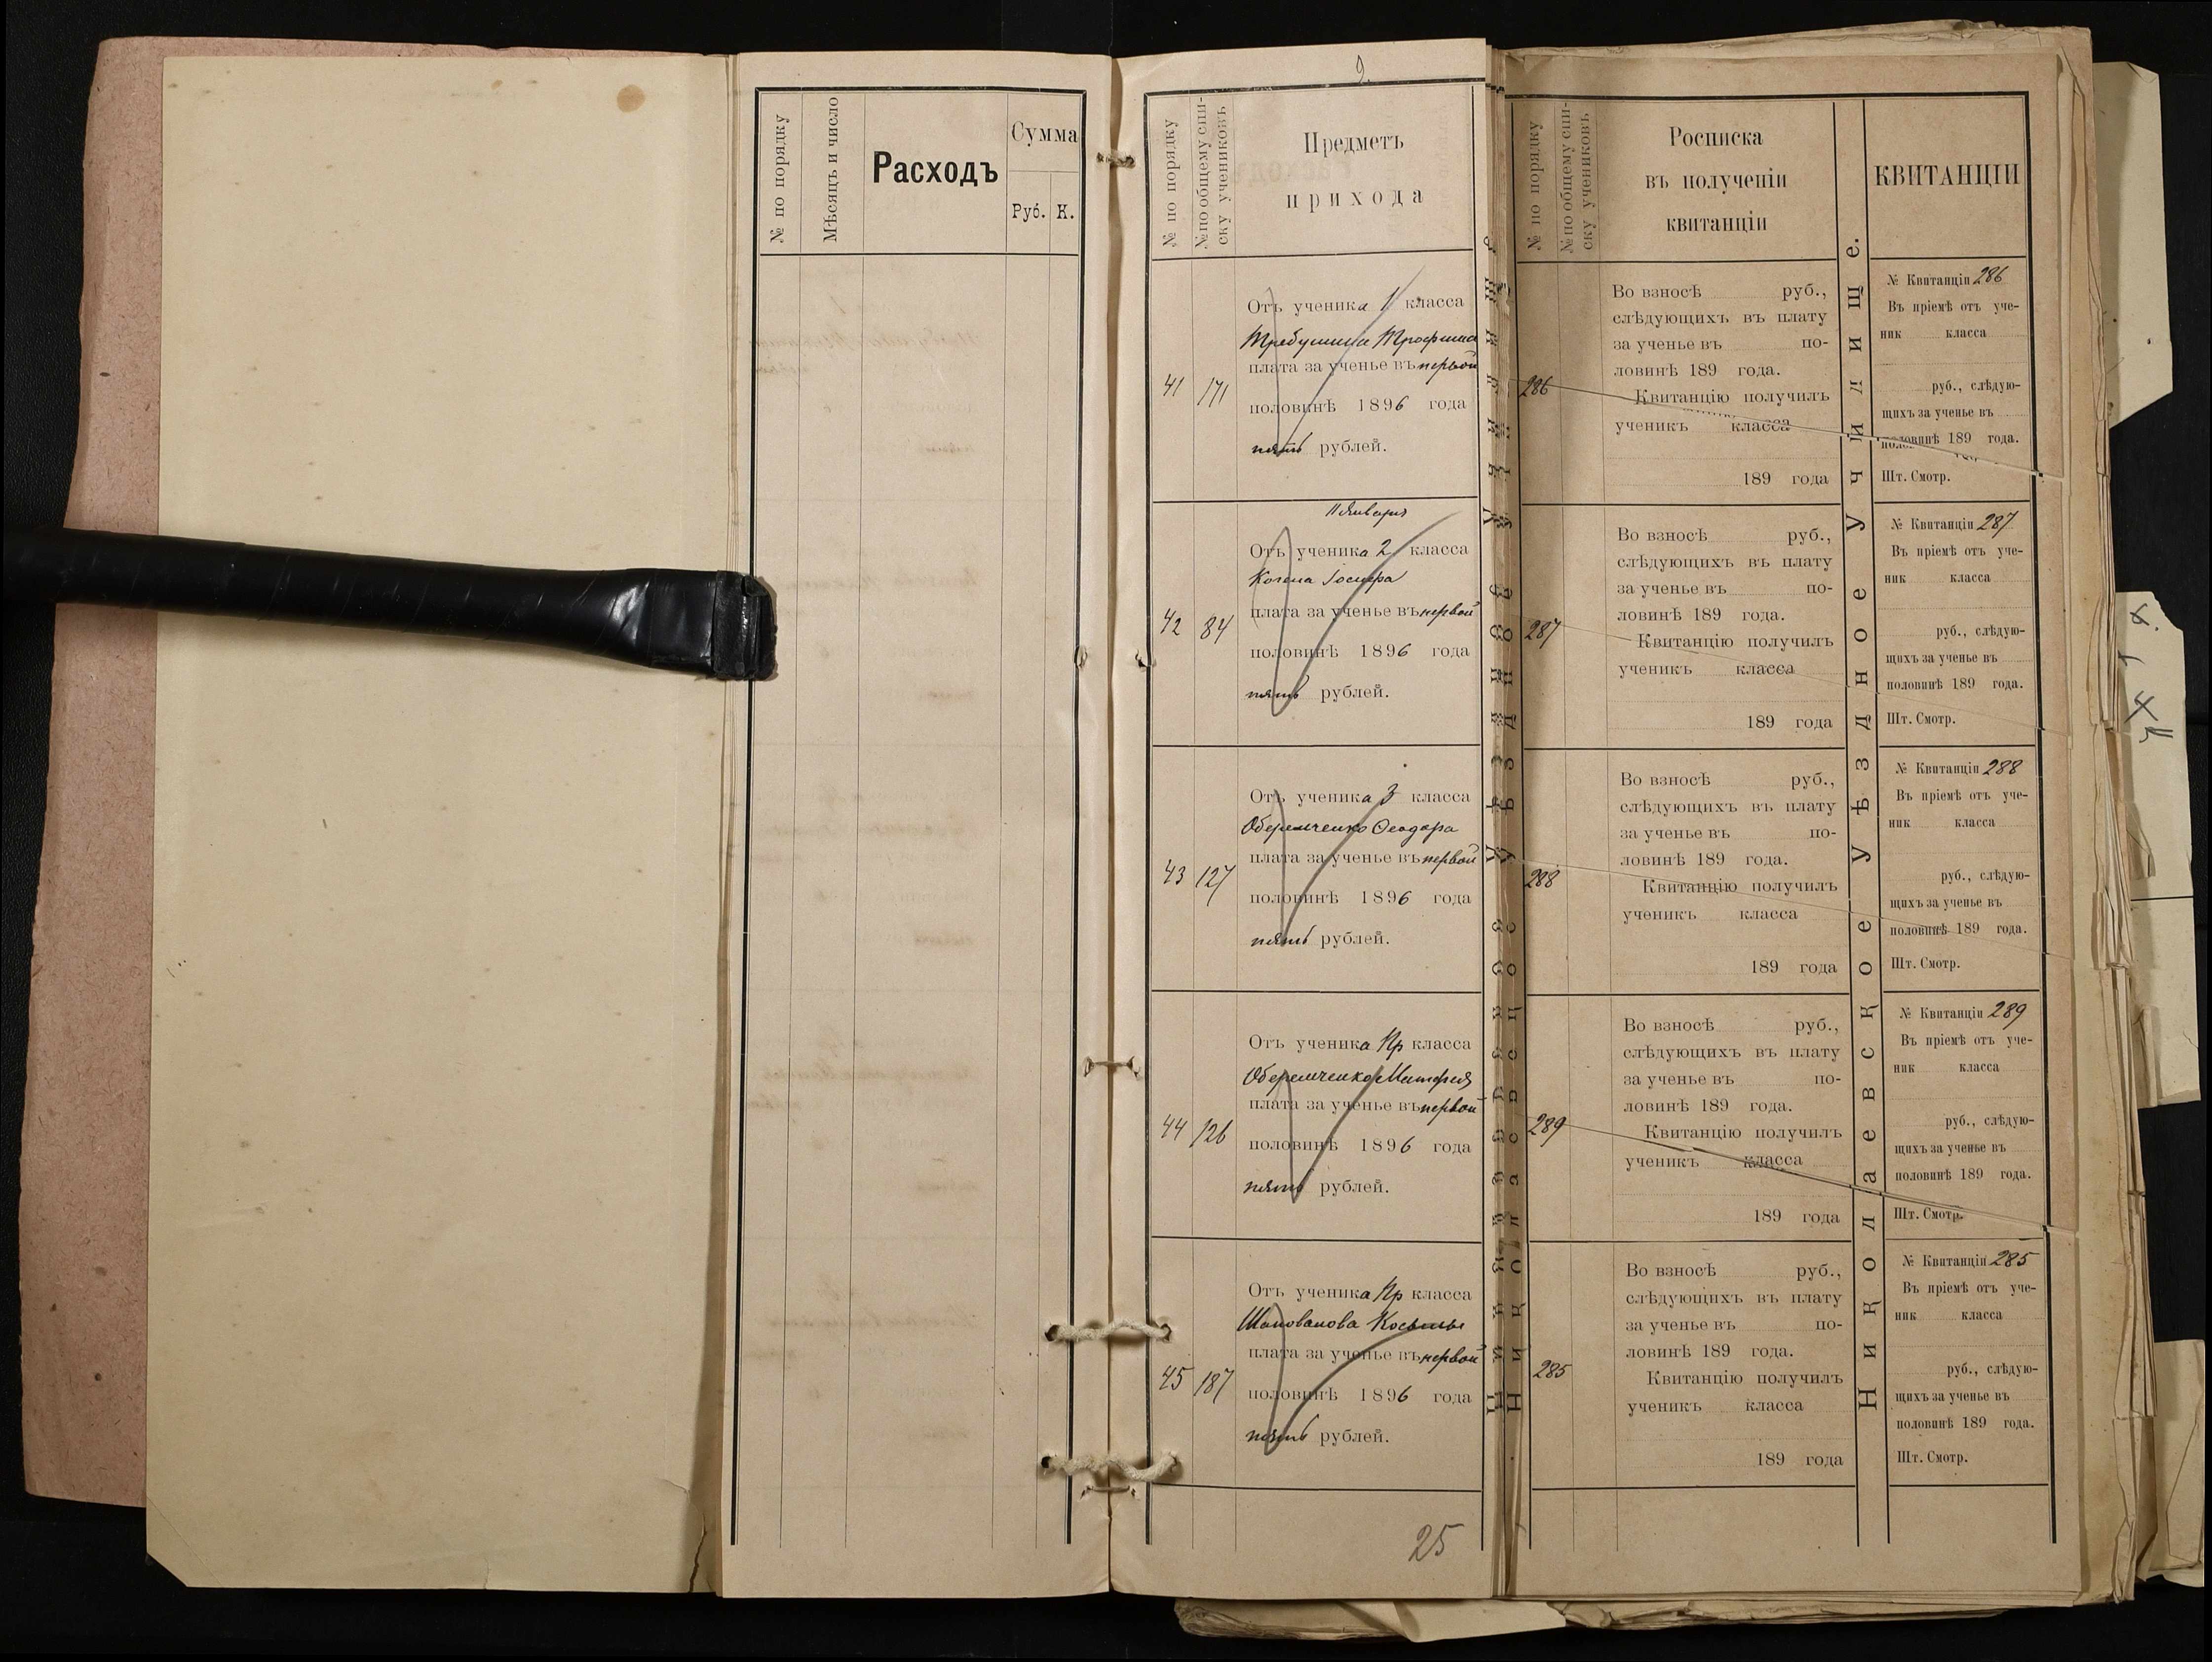 № по порядку
Мѣсяцъ и число
Расходъ
Сумма
Руб. К.
2.
№ по порядку
№ по общему спи-
ску учениковъ
Предметъ
прихода
Отъ ученика 1 класса
41 171
плата за ученье въ первой
половинѣ 1896 года
пять рублей.
11 Января
Отъ ученика 2 класса
Когена Іосифа
42 84
плата за ученье въ первой
половинѣ 1896 года
пять рублей.
Отъ ученика 3 класса
Оберемченко Ѳеодора
43 127
плата за ученье въ первой
половинѣ 1896 года
пять рублей.
Отъ ученика Пр класса
Оберемченко
44 126
плата за ученье въ первой
половинѣ 1896 года
пять рублей.
Отъ ученика Пр класса
Шаповалова Косьмы
45 187
плата за ученье въ первой
половинѣ 1896 года
пять рублей.
25
№ по порядку
№ по общему спи-
ску учениковъ
Росписка
въ полученіи
квитанціи
Во взносѣ руб.,
слѣдующихъ въ плату
за ученье въ по-
ловинѣ 189 года.
286
Квитанцію получилъ
ученикъ класса
189 года
Во взносѣ руб.,
слѣдующихъ въ плату
за ученье въ по-
ловинѣ 189 года.
287
Квитанцію получилъ
ученикъ класса
189 года
Во взносѣ руб.,
слѣдующихъ въ плату
за ученье въ по-
ловинѣ 189 года.
288
Квитанцію получилъ
ученикъ класса
189 года
Во взносѣ руб.,
слѣдующихъ въ плату
за ученье въ по-
ловинѣ 189 года.
289
Квитанцію получилъ
ученикъ класса
189 года
Во взносѣ руб.,
слѣдующихъ въ плату
за ученье въ по-
ловинѣ 189 года.
285
Квитанцію получилъ
ученикъ класса
189 года
Николаевское Уѣздное Училище.
КВИТАНЦІИ
№ Квитанціи 286
Въ пріемѣ отъ уче-
ник класса
руб., слѣдую-
щихъ за ученье въ
половинѣ 189 года.
Шт. Смотр.
№ Квитанціи 287
Въ пріемѣ отъ уче-
ник класса
руб., слѣдую-
щихъ за ученье въ
половинѣ 189 года.
Шт. Смотр.
№ Квитанціи 288
Въ пріемѣ отъ уче-
ник класса
руб., слѣдую-
щихъ за ученье въ
половинѣ 189 года.
Шт. Смотр.
№ Квитанціи 289
Въ пріемѣ отъ уче-
ник класса
руб., слѣдую-
щихъ за ученье въ
половинѣ 189 года.
Шт. Смотр.
№ Квитанціи 285
Въ пріемѣ отъ уче-
ник класса
руб., слѣдую-
щихъ за ученье въ
половинѣ 189 года.
Шт. Смотр.